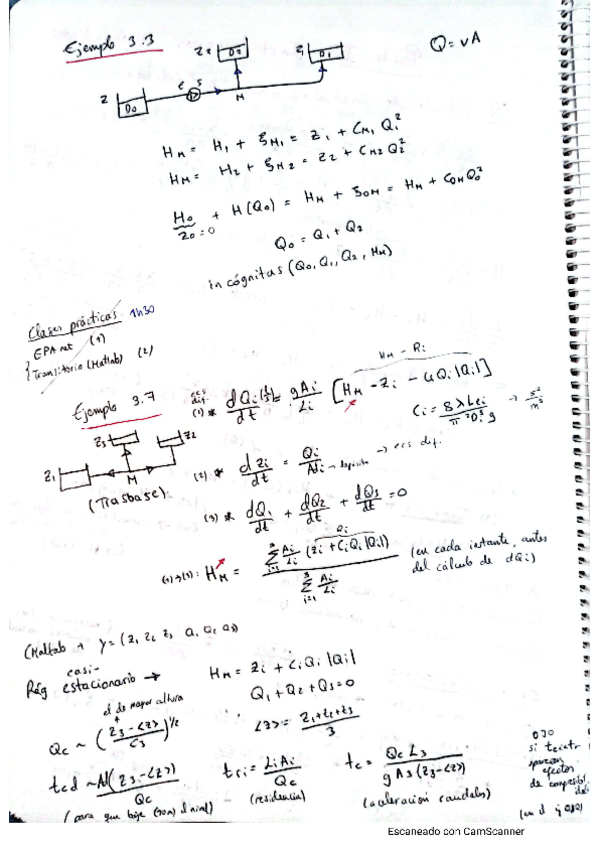 Ejemplo 3.3
Z2 D2 Z1 D1 Q = vA
Z D0 E S M
H_M = H_1 + ξ_M1 = Z_1 + C_M1 Q_1^2
H_M = H_2 + ξ_M2 = Z_2 + C_M2 Q_2^2
H_0 + H(Q_0) = H_M + ξ_0M = H_M + C_0M Q_0^2
Z_0 = 0
Q_0 = Q_1 + Q_2
incógnitas (Q_0, Q_1, Q_2, H_M)
Clases prácticas 1h30
EPAnet (1)
Transitorio (Matlab) (2)
Ejemplo 3.7
H_M - R_i
(1) * dQ_i/dt = gA_i/L_i [H_M - Z_i - C_i Q_i |Q_i|]
C_i = 8 λ L_ei / π² D_i^5 g → s²/m^5
Z3 Z2
Z1 M
(Trasbase)
(2) * dZ_i/dt = Q_i/A_di → depósito → ecs dif.
(3) * dQ_1/dt + dQ_2/dt + dQ_3/dt = 0
(1)→(3): H_M = Σ_{i=1}^3 A_i/L_i (Z_i + C_i Q_i |Q_i|) / Σ_{i=1}^3 A_i/L_i
(en cada instante, antes
del cálculo de dQ_i)
(Maltab → y = (Z_1 Z_2 Z_3 Q_1 Q_2 Q_3)
casi-
Rég. estacionario → H_M = Z_i + C_i Q_i |Q_i|
Q_1 + Q_2 + Q_3 = 0
el de mayor altura
Q_c ~ (Z_3 - <Z> / C_3)^1/2
<Z> = Z_1 + Z_2 + Z_3 / 3
t_cd ~ A_d (Z_3 - <Z>) / Q_c
(para que baje el nivel)
t_ri = L_i A_i / Q_c
(residencia)
t_c = Q_c L_3 / g A_3 (Z_3 - <Z>)
(aceleración caudales)
OJO
si
efectos
de
Escaneado con CamScanner